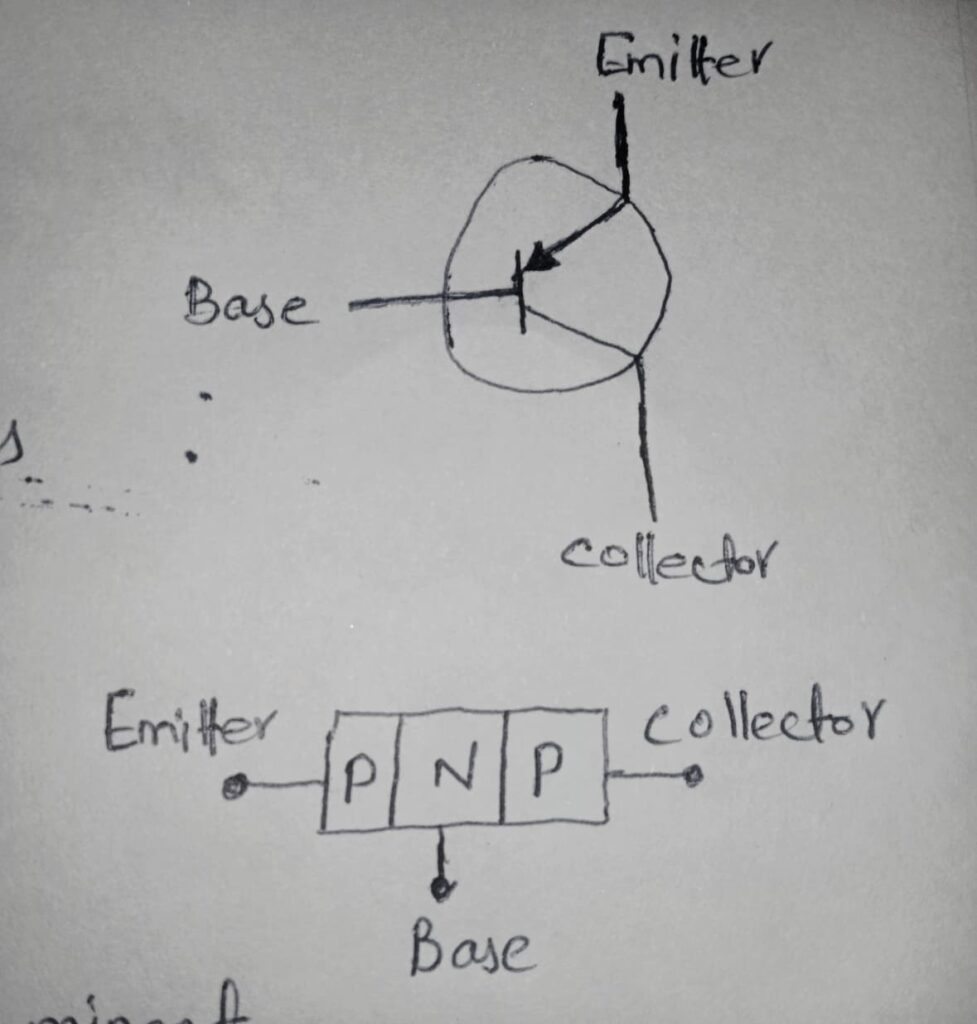 Emitter
Base
s
Collector
Emitter
Collector
P N P
Base